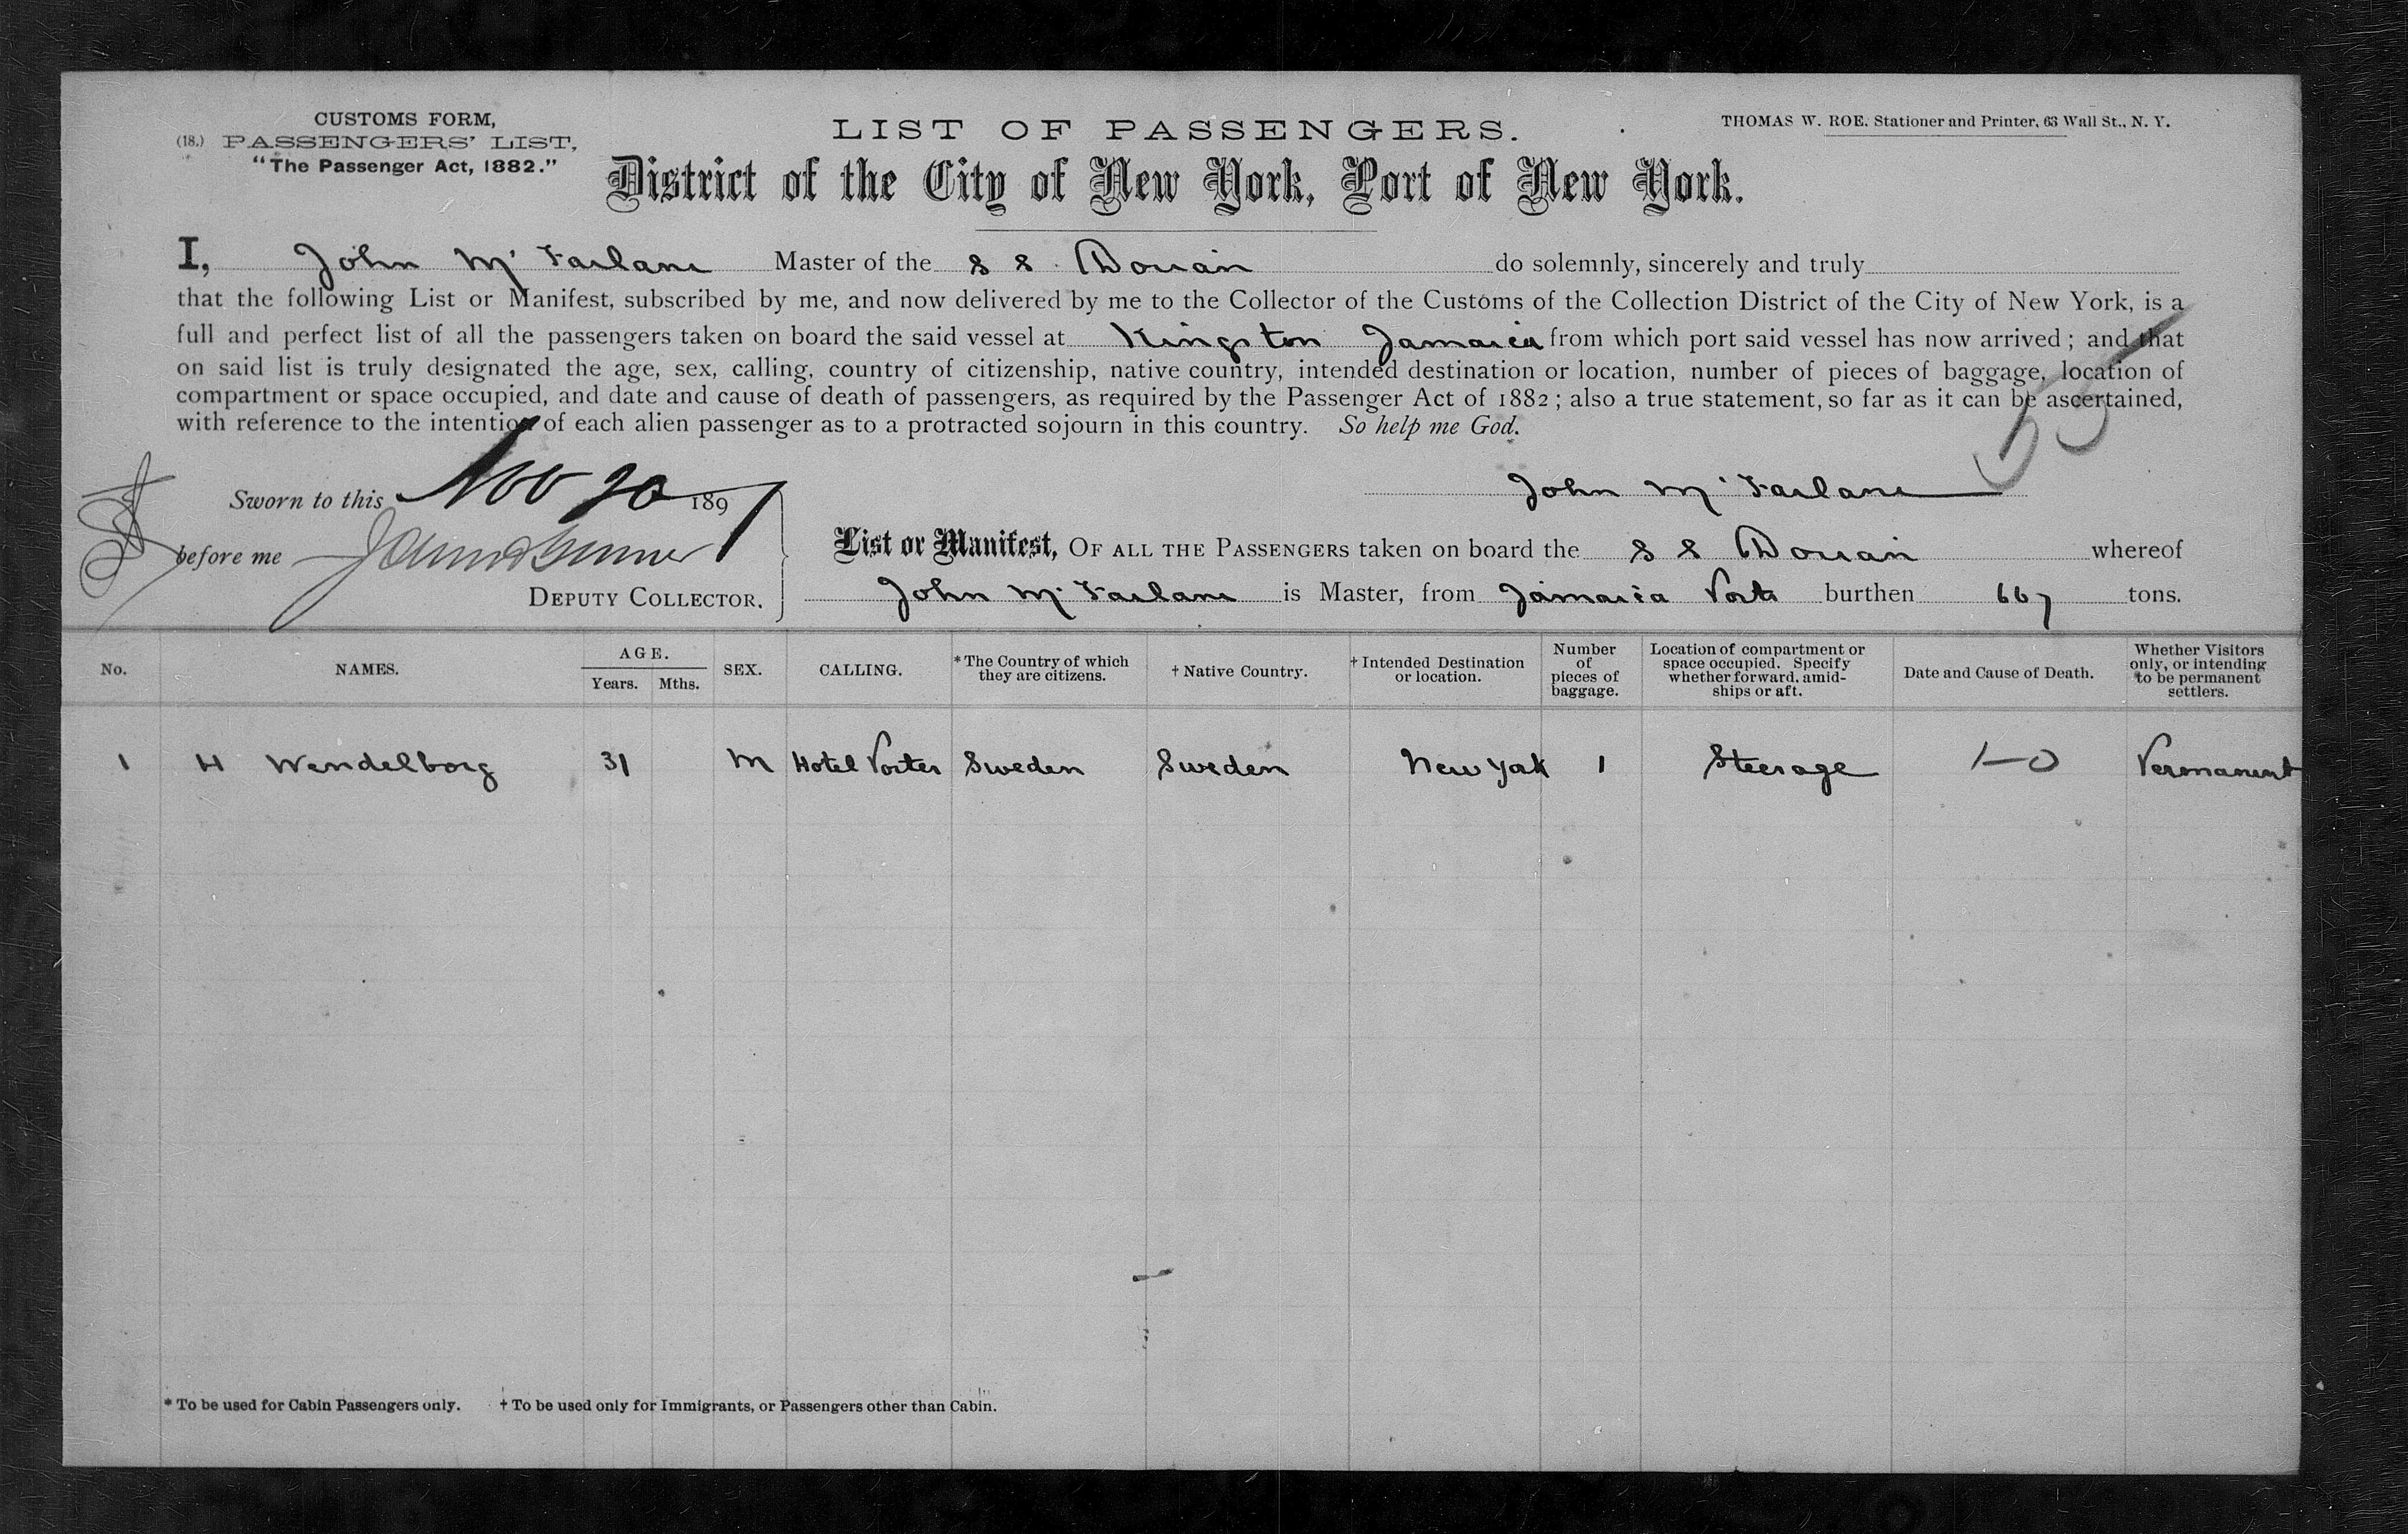 CUSTOMS FORM,
(18.) PASSENGERS' LIST,
"The Passenger Act, 1882."
LIST OF PASSENGERS.
THOMAS W. ROE. Stationer and Printer, 63 Wall St., N. Y.
District of the City of New York, Port of New York.
I, John Mc Farlane Master of the S S Dorian do solemnly, sincerely and truly
that the following List or Manifest, subscribed by me, and now delivered by me to the Collector of the Customs of the Collection District of the City of New York, is a
full and perfect list of all the passengers taken on board the said vessel at Kingston Jamaica from which port said vessel has now arrived; and that
on said list is truly designated the age, sex, calling, country of citizenship, native country, intended destination or location, number of pieces of baggage, location of
compartment or space occupied, and date and cause of death of passengers, as required by the Passenger Act of 1882; also a true statement, so far as it can be ascertained,
with reference to the intention of each alien passenger as to a protracted sojourn in this country. So help me God.
Sworn to this Nov 20 1891
John Mc Farlane
before me
DEPUTY COLLECTOR.
List or Manifest, OF ALL THE PASSENGERS taken on board the S S Dorian whereof
John Mc Farlane is Master, from Jamaica Ports burthen 667 tons.
No. NAMES. AGE. Years. Mths. SEX. CALLING. * The Country of which they are citizens. † Native Country. † Intended Destination or location. Number of pieces of baggage. Location of compartment or space occupied. Specify whether forward. amidships or aft. Date and Cause of Death. Whether Visitors only, or intending to be permanent settlers.
1 H Wendelborg 31 M Hotel Porter Sweden Sweden New York 1 Steerage 1-0 Permanent
* To be used for Cabin Passengers only. † To be used only for Immigrants, or Passengers other than Cabin.